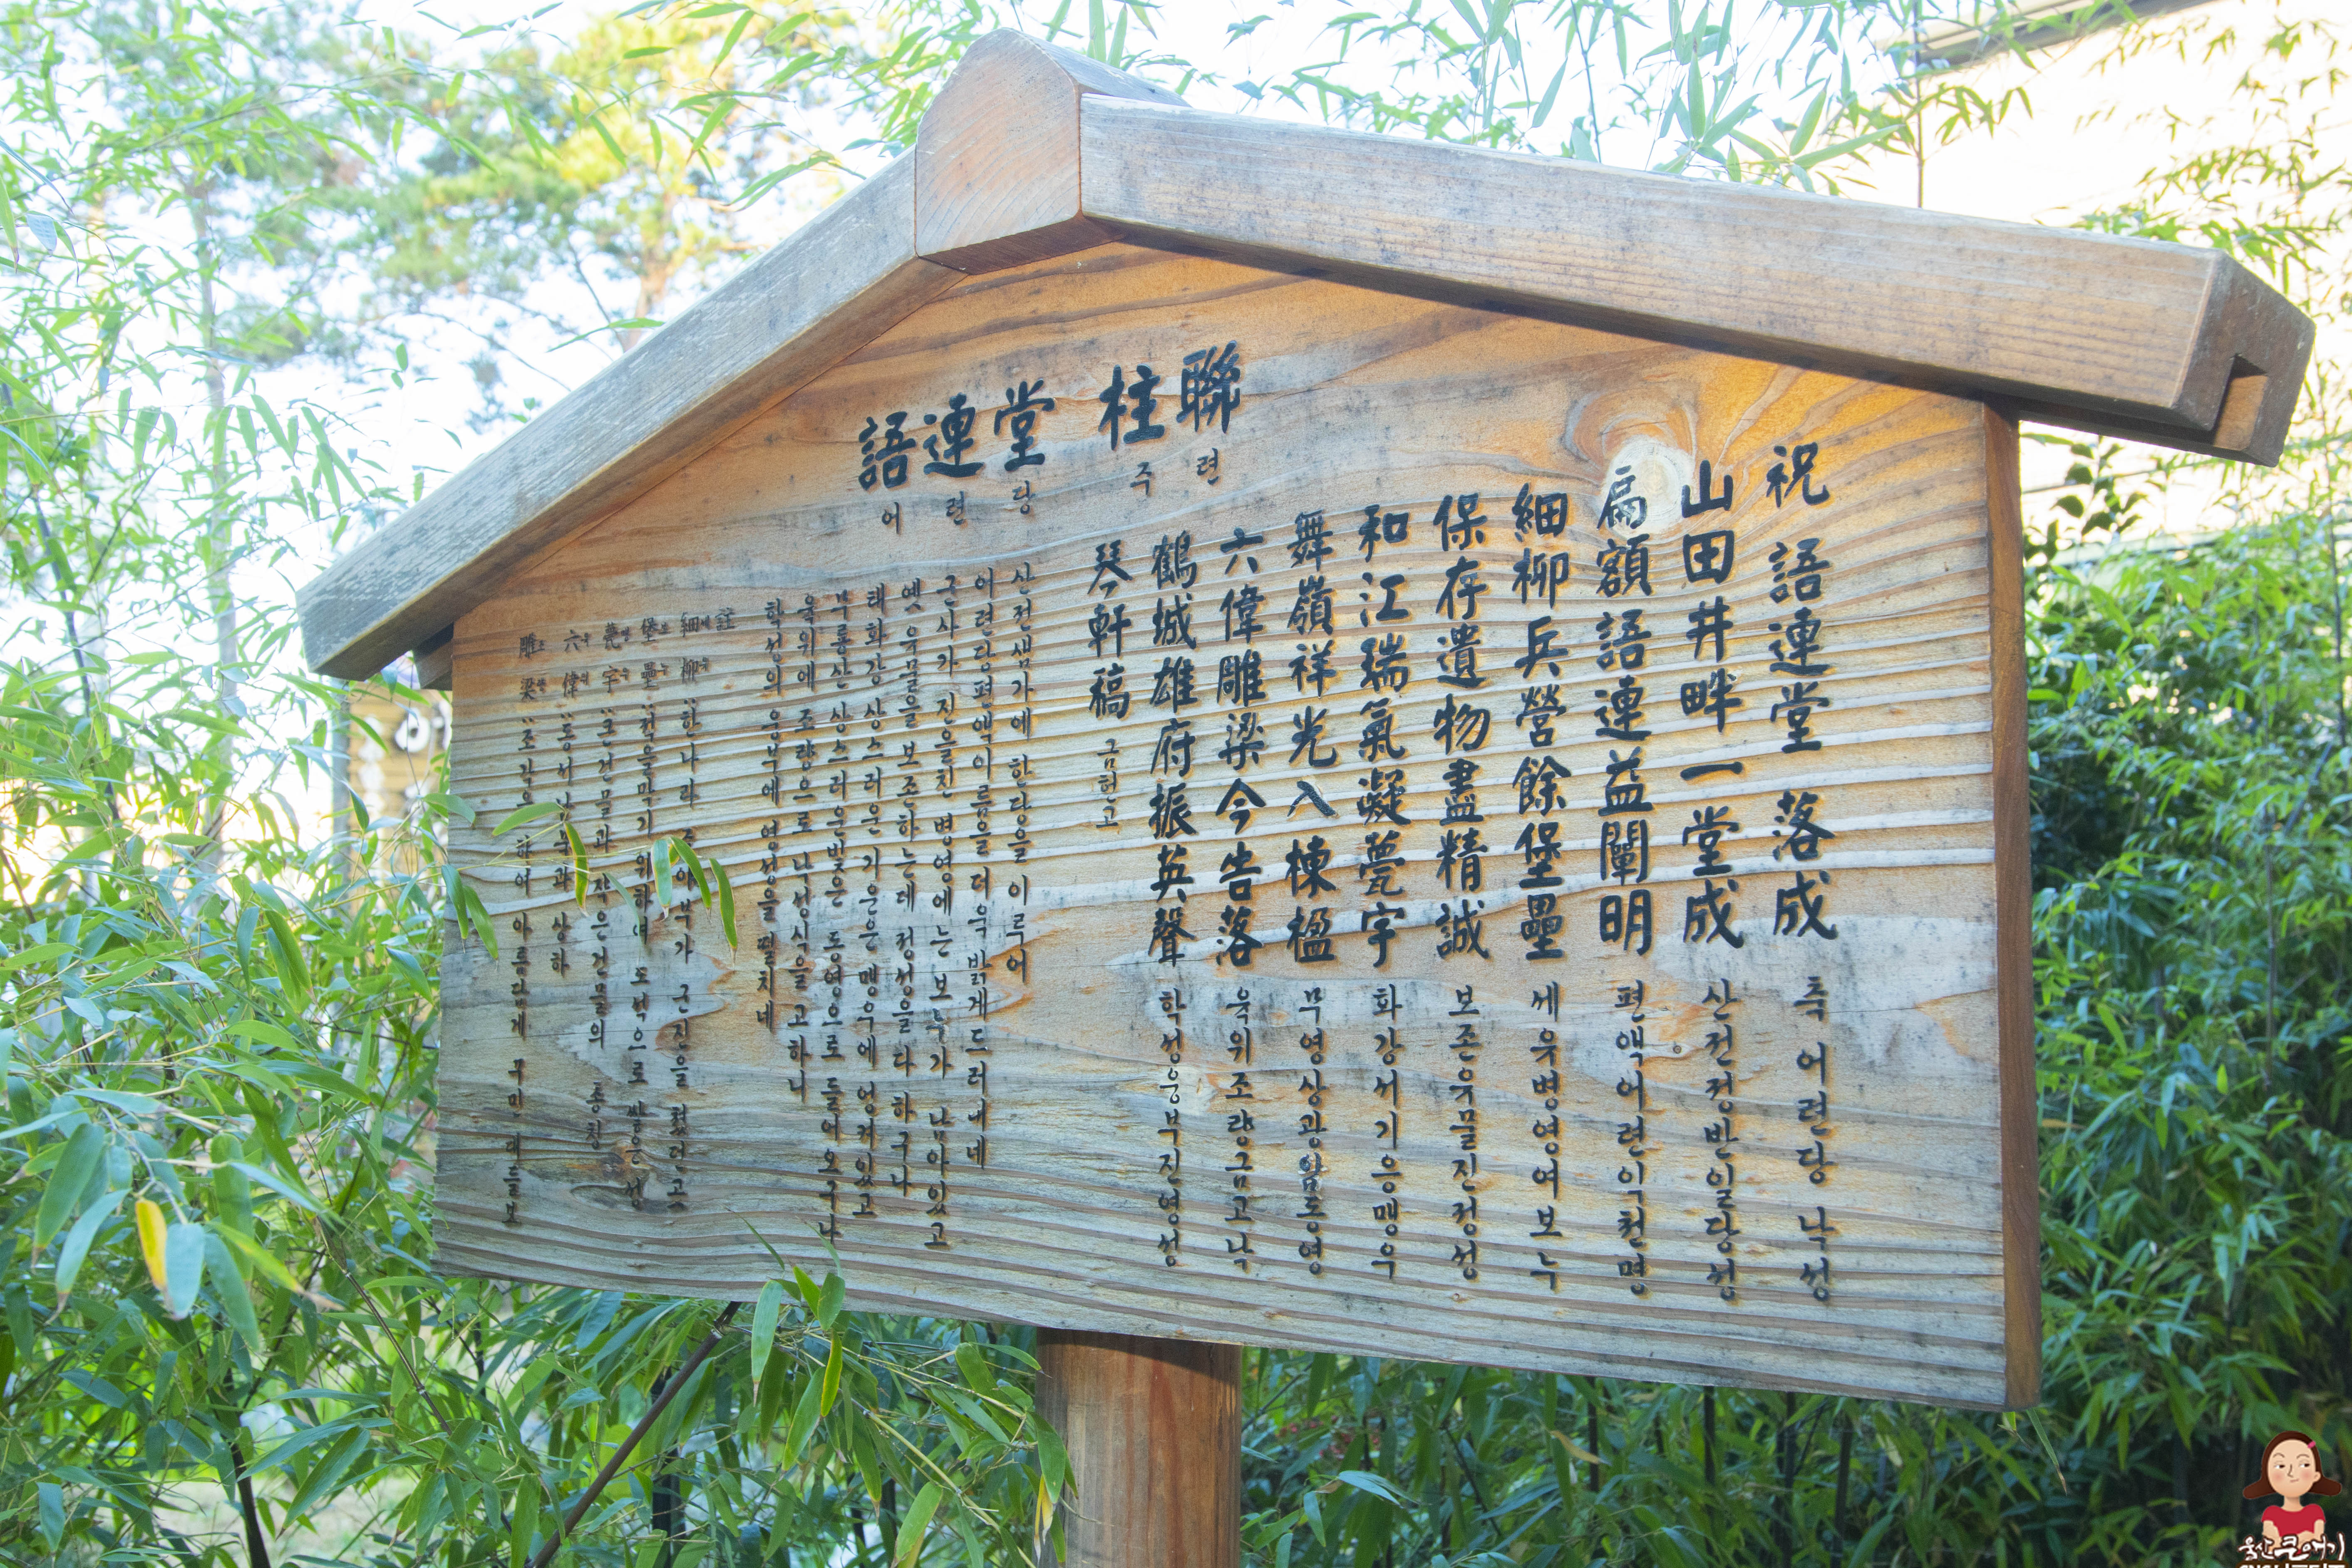 語連堂 柱聯
어련당 주련
祝 語連堂 落成 축 어련당 낙성
山田井畔一堂成 산전정반일당성
扁額語連益闡明 편액어련익천명
細柳兵營餘堡壘 세유병영여보누
保存遺物盡精誠 보존유물진정성
和江瑞氣凝甍宇 화강서기응맹우
舞嶺祥光入棟楹 무영상광입동영
六偉雕梁今告落 육위조량금고낙
鶴城雄府振英聲 학성웅부진영성
琴軒稿 금헌고
산전샘가에 한당을 이루어
어련당편액이름을 더욱 밝게드러내네
군사가 진을친 병영에는 보루가 남아있고
옛 유물을 보존하는데 정성을 다 하구나
태화강 상스러운 기운은 맹우에 엉겨있고
무룡산 상스러운빛은 동영으로 들어오구나
육위에 조량으로 낙성식을 고하니
학성의 웅부에 영성을 떨치네
註
細세柳유:한나라 가 군진을 쳤던곳
堡보壘누:적을막기 위하여 토석으로 쌓은 성
甍맹宇우:큰건물과 작은건물의 총칭
六육偉위:동서남북과 상하
雕조梁량:조각을 하여 아름답게 꾸민 대들보
울산큰애기